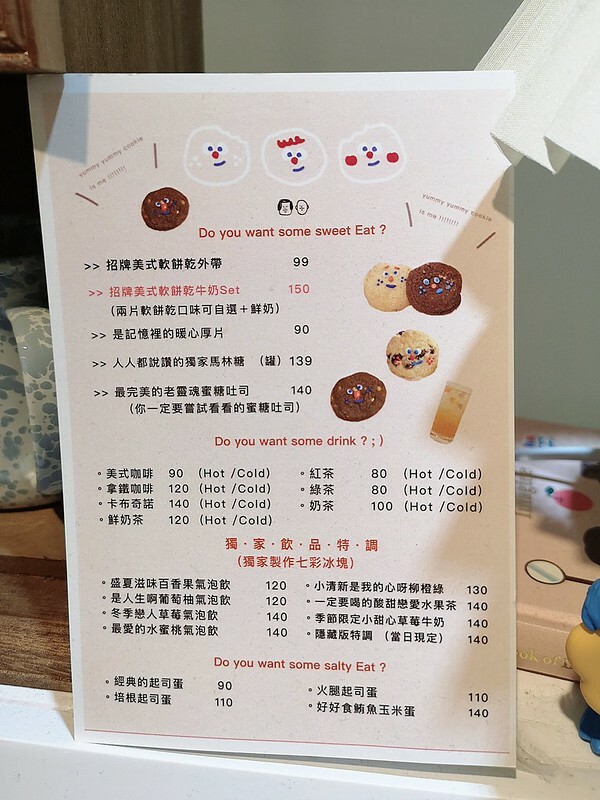 yummy yummy cookie
is me !!!!!!!!
yummy yummy cookie
is me !!!!!!!!
Do you want some sweet Eat ?
>> 招牌美式軟餅乾外帶 99
>> 招牌美式軟餅乾牛奶Set 150
（兩片軟餅乾口味可自選＋鮮奶）
>> 是記憶裡的暖心厚片 90
>> 人人都說讚的獨家馬林糖 （罐）139
>> 最完美的老靈魂蜜糖吐司 140
（你一定要嘗試看看的蜜糖吐司）
Do you want some drink ? ; )
。美式咖啡 90 (Hot /Cold)
。拿鐵咖啡 120 (Hot /Cold)
。卡布奇諾 140 (Hot /Cold)
。鮮奶茶 120 (Hot /Cold)
。紅茶 80 (Hot /Cold)
。綠茶 80 (Hot /Cold)
。奶茶 100 (Hot /Cold)
獨·家·飲·品·特·調
(獨家製作七彩冰塊)
。盛夏滋味百香果氣泡飲 120
。是人生啊葡萄柚氣泡飲 120
。冬季戀人草莓氣泡飲 140
。最愛的水蜜桃氣泡飲 140
。小清新是我的心呀柳橙綠 130
。一定要喝的酸甜戀愛水果茶 140
。季節限定小甜心草莓牛奶 140
。隱藏版特調 （當日現定） 140
Do you want some salty Eat ?
。經典的起司蛋 90
。培根起司蛋 110
。火腿起司蛋 110
。好好食鮪魚玉米蛋 140